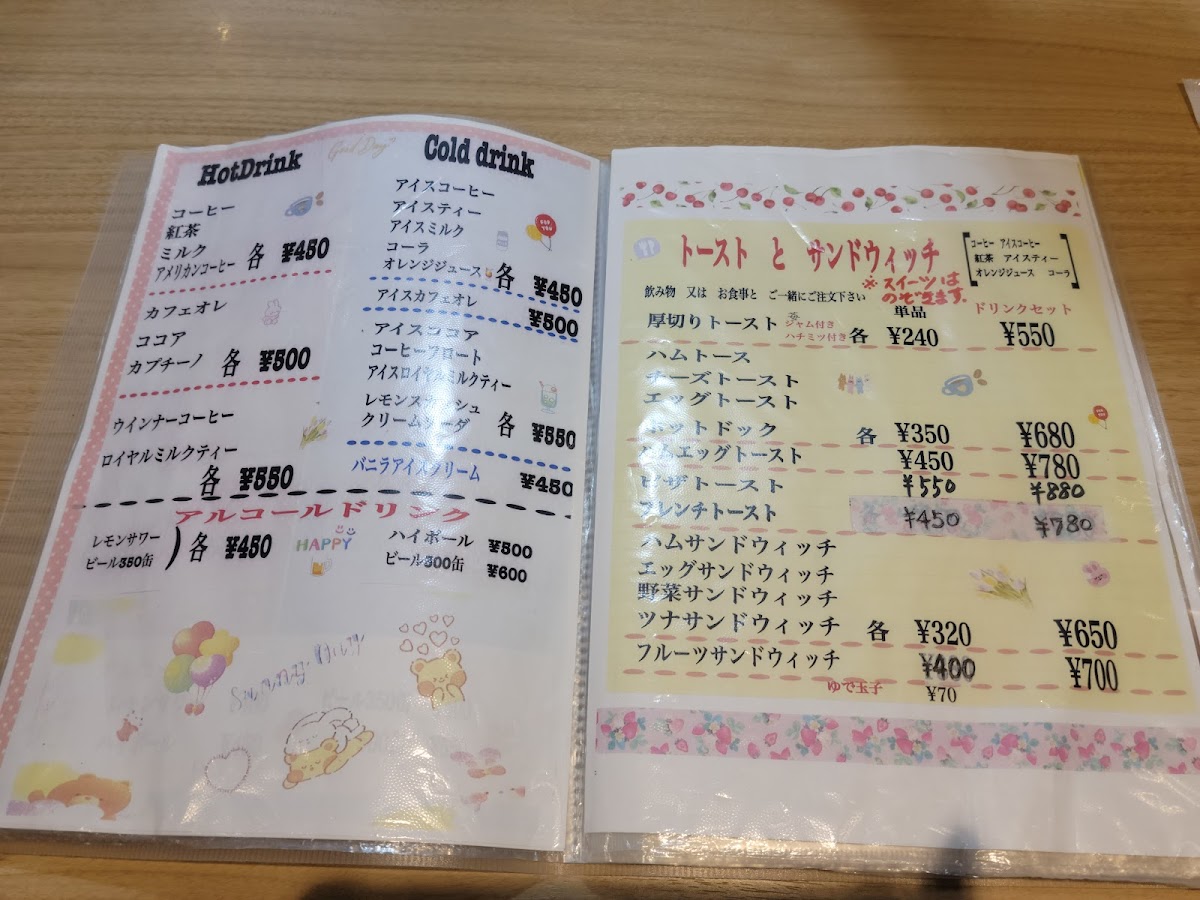 HotDrink
Good Day
コーヒー
紅茶
ミルク
アメリカンコーヒー 各 ¥450
カフェオレ
ココア
カプチーノ 各 ¥500
ウインナーコーヒー
ロイヤルミルクティー
各 ¥550
Cold drink
アイスコーヒー
アイスティー
アイスミルク
コーラ
オレンジジュース 各 ¥450
アイスカフェオレ
¥500
アイスココア
コーヒーフロート
アイスロイヤルミルクティー
レモンスカッシュ
クリームソーダ 各 ¥550
バニラアイスクリーム ¥450
アルコールドリンク
レモンサワー
ビール350缶 ) 各 ¥450
HAPPY
ハイボール ¥500
ビール500缶 ¥600
トースト と サンドウィッチ
コーヒー アイスコーヒー
紅茶 アイスティー
オレンジジュース コーラ
※スイーツは
のぞきます。
飲み物 又は お食事と ご一緒にご注文下さい
単品 ドリンクセット
厚切りトースト ジャム付き
ハチミツ付き 各 ¥240 ¥550
ハムトース
チーズトースト
エッグトースト
ホットドック 各 ¥350 ¥680
ハムエッグトースト ¥450 ¥780
ピザトースト ¥550 ¥880
フレンチトースト ¥450 ¥780
ハムサンドウィッチ
エッグサンドウィッチ
野菜サンドウィッチ
ツナサンドウィッチ 各 ¥320 ¥650
フルーツサンドウィッチ ¥400 ¥700
ゆで玉子 ¥70